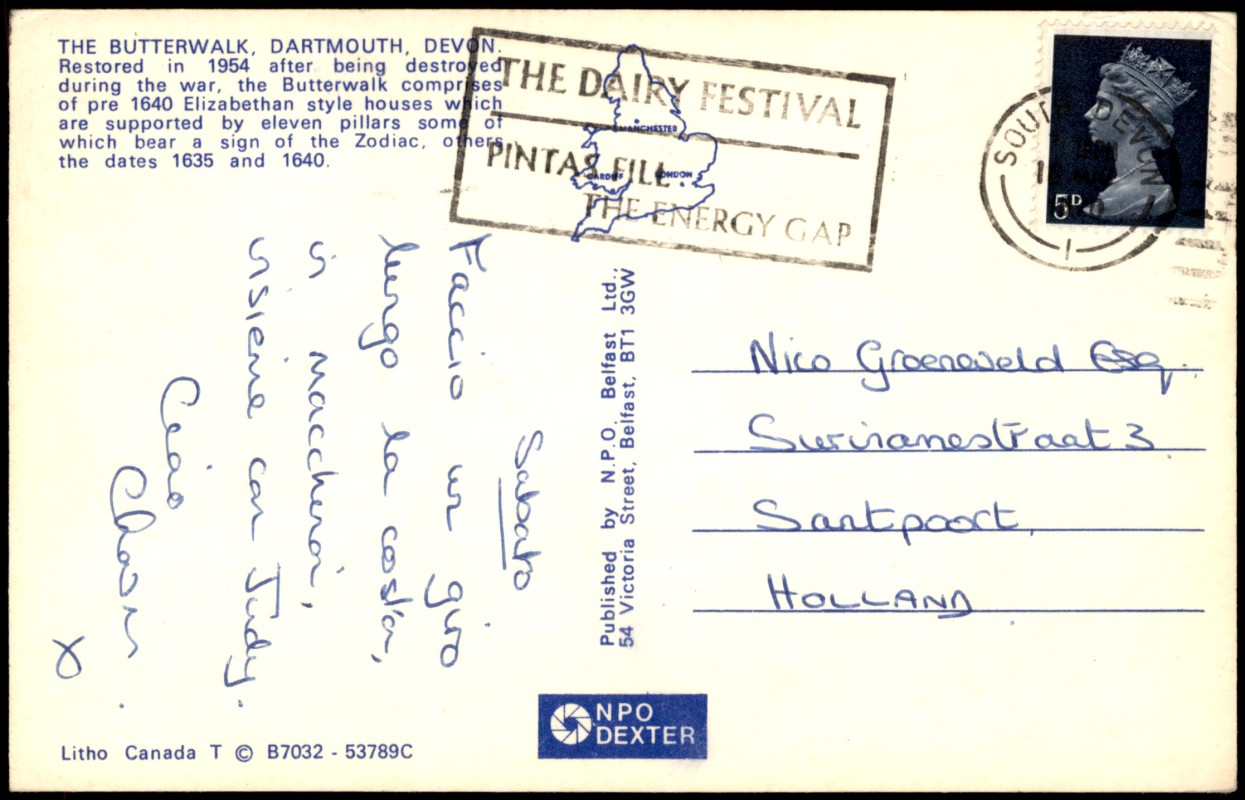 THE BUTTERWALK, DARTMOUTH, DEVON.
Restored in 1954 after being destroyed
during the war, the Butterwalk comprises
of pre 1640 Elizabethan style houses which
are supported by eleven pillars some of
which bear a sign of the Zodiac, others
the dates 1635 and 1640.
THE DAIRY FESTIVAL
PINTAS FILL
THE ENERGY GAP
MANCHESTER
CARDIFF LONDON
SOUTH DEVON
5D
Sabato
Faccio un giro
lungo la costa,
in
insieme con Judy.
Ciao
X
Published by N.P.O. Belfast Ltd.,
54 Victoria Street, Belfast, BT1 3GW
Nico Groeneveld Esq.
Surinamestraat 3
Santpoort,
HOLLAND
NPO
DEXTER
Litho Canada T © B7032 - 53789C